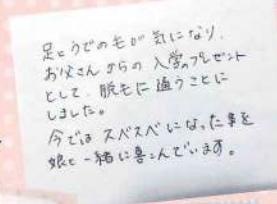 足とうでの毛が気になり、
お父さんからの入学のプレゼント
として、脱毛に通うことに
しました。
今ではスベスベになった事を
娘と一緒に喜こんでいます。